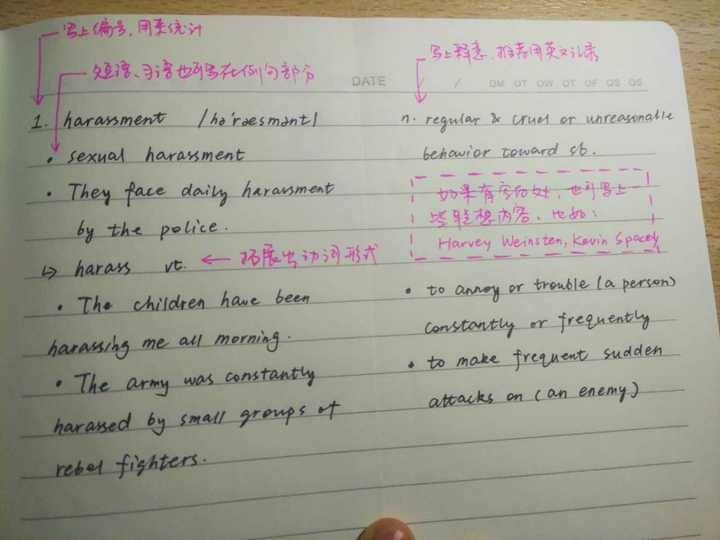 写上编号,用来统计
短语、习语也可写在例句部分
写上释意,推荐用英文记录
DATE / /
OM OT OW OT OF OS OS
1. harassment /hə'ræsmənt/
n. regular & cruel or unreasonable
behavior toward sb.
• sexual harassment
• They face daily harassment
by the police.
如果有空白处,也可写上一
些联想内容,比如:
Harvey Weinsten, Kevin Spacey
↳ harass vt. ← 拓展出动词形式
• The children have been
harassing me all morning.
• The army was constantly
harassed by small groups of
rebel fighters.
• to annoy or trouble (a person)
constantly or frequently
• to make frequent sudden
attacks on (an enemy)